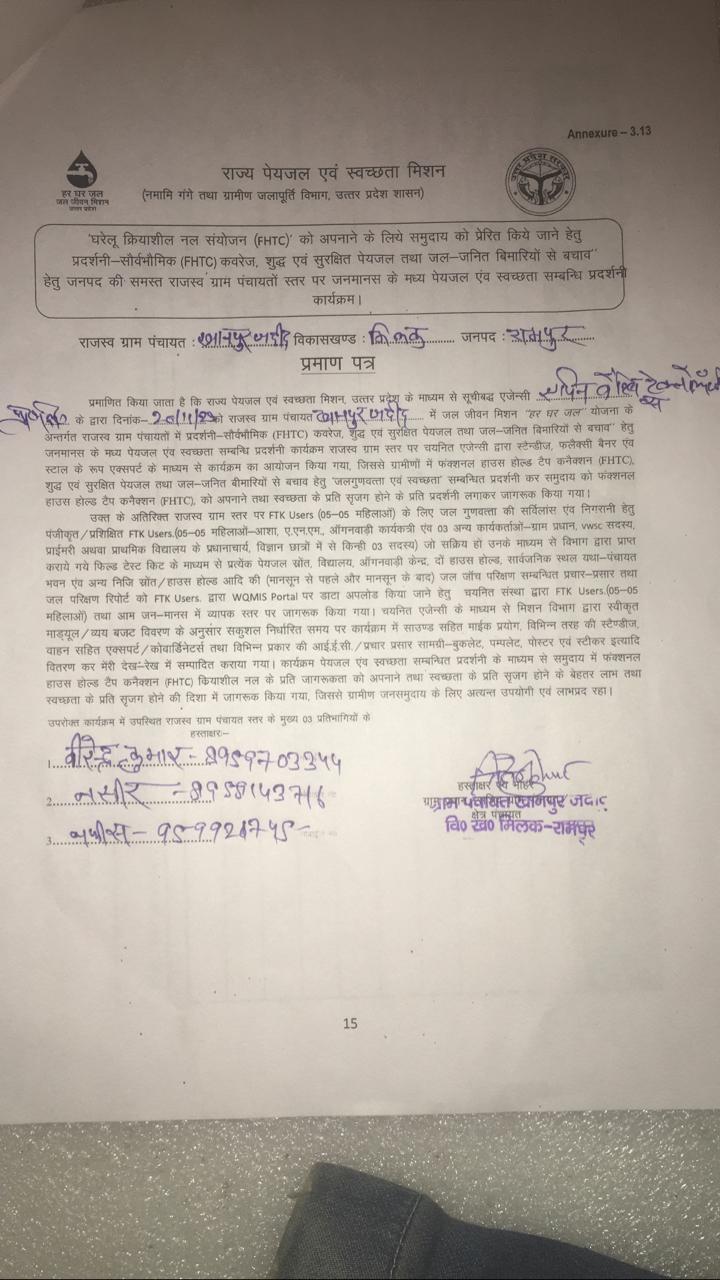 Annexure – 3.13
हर घर जल
जल जीवन मिशन
उत्तर प्रदेश
राज्य पेयजल एवं स्वच्छता मिशन
(नमामि गंगे तथा ग्रामीण जलापूर्ति विभाग, उत्तर प्रदेश शासन)
उत्तर प्रदेश सरकार
'घरेलू क्रियाशील नल संयोजन (FHTC)' को अपनाने के लिये समुदाय को प्रेरित किये जाने हेतु
प्रदर्शनी–सौर्वभौमिक (FHTC) कवरेज, शुद्ध एवं सुरक्षित पेयजल तथा जल–जनित बिमारियों से बचाव"
हेतु जनपद की समस्त राजस्व ग्राम पंचायतों स्तर पर जनमानस के मध्य पेयजल एंव स्वच्छता सम्बन्धि प्रदर्शनी
कार्यक्रम।
राजस्व ग्राम पंचायत : खानपुर जदीद विकासखण्ड : मिलक जनपद : रामपुर
प्रमाण पत्र
प्रमाणित किया जाता है कि राज्य पेयजल एवं स्वच्छता मिशन, उत्तर प्रदेश के माध्यम से सूचीबद्ध एजेन्सी
के द्वारा दिनांक– को राजस्व ग्राम पंचायत खानपुर जदीद में जल जीवन मिशन "हर घर जल" योजना के
अन्तर्गत राजस्व ग्राम पंचायतों में प्रदर्शनी–सौर्वभौमिक (FHTC) कवरेज, शुद्ध एवं सुरक्षित पेयजल तथा जल–जनित बिमारियों से बचाव" हेतु
जनमानस के मध्य पेयजल एंव स्वच्छता सम्बन्धि प्रदर्शनी कार्यक्रम राजस्व ग्राम स्तर पर चयनित एजेन्सी द्वारा स्टेन्डीज, फलैक्सी बैनर एंव
स्टाल के रूप एक्सपर्ट के माध्यम से कार्यक्रम का आयोजन किया गया, जिससे ग्रामीणों में फंक्शनल हाउस होल्ड टैप कनैक्शन (FHTC),
शुद्ध एवं सुरक्षित पेयजल तथा जल–जनित बीमारियों से बचाव हेतु 'जलगुणवत्ता एंव स्वच्छता' सम्बन्धित प्रदर्शनी कर समुदाय को फंक्शनल
हाउस होल्ड टैप कनैक्शन (FHTC), को अपनाने तथा स्वच्छता के प्रति सृजग होने के प्रति प्रदर्शनी लगाकर जागरूक किया गया।
उक्त के अतिरिक्त राजस्व ग्राम स्तर पर FTK Users (05–05 महिलाओं) के लिए जल गुणवत्ता की सर्विलांस एंव निगरानी हेतु
पंजीकृत/प्रशिक्षित FTK Users.(05–05 महिलाओं–आशा, ए.एन.एम., ऑगनवाड़ी कार्यकत्री एंव 03 अन्य कार्यकर्ताओं–ग्राम प्रधान, vwsc सदस्य,
प्राईमरी अथवा प्राथमिक विद्यालय के प्रधानाचार्य, विज्ञान छात्रों में से किन्ही 03 सदस्य) जो सक्रिय हो उनके माध्यम से विभाग द्वारा प्राप्त
कराये गये फिल्ड टेस्ट किट के माध्यम से प्रत्येक पेयजल स्रोत, विद्यालय, ऑगनवाड़ी केन्द्र, दों हाउस होल्ड, सार्वजनिक स्थल यथा–पंचायत
भवन एंव अन्य निजि स्रोत/हाउस होल्ड आदि की (मानसून से पहले और मानसून के बाद) जल जाँच परिक्षण सम्बन्धित प्रचार–प्रसार तथा
जल परिक्षण रिपोर्ट को FTK Users. द्वारा WQMIS Portal पर डाटा अपलोड किया जाने हेतु चयनित संस्था द्वारा FTK Users.(05–05
महिलाओं) तथा आम जन–मानस में व्यापक स्तर पर जागरूक किया गया। चयनित एजेन्सी के माध्यम से मिशन विभाग द्वारा स्वीकृत
माड्यूल/व्यय बजट विवरण के अनुसार सकुशल निर्धारित समय पर कार्यक्रम में साउण्ड सहित माईक प्रयोग, विभिन्न तरह की स्टैण्डीज,
वाहन सहित एक्सपर्ट/कोवार्डिनेटर्स तथा विभिन्न प्रकार की आई.ई.सी./प्रचार प्रसार सामग्री–बुकलेट, पम्पलेट, पोस्टर एंव स्टीकर इत्यादि
वितरण कर मेंरी देख–रेख में सम्पादित कराया गया। कार्यक्रम पेयजल एंव स्वच्छता सम्बन्धित प्रदर्शनी के माध्यम से समुदाय में फंक्शनल
हाउस होल्ड टैप कनैक्शन (FHTC) कियाशील नल के प्रति जागरूकता को अपनाने तथा स्वच्छता के प्रति सृजग होने के बेहतर लाभ तथा
स्वच्छता के प्रति सृजग होने की दिशा में जागरूक किया गया, जिससे ग्रामीण जनसमुदाय के लिए अत्यन्त उपयोगी एवं लाभप्रद रहा।
उपरोक्त कार्यक्रम में उपस्थित राजस्व ग्राम पंचायत स्तर के मुख्य 03 प्रतिभागियों के
हस्ताक्षरः–
1. वीरेन्द्र कुमार –
2. नसीर –
3.
हस्ताक्षर एंव मोहर
ग्राम पंचायत खानपुर जदीद
क्षेत्र पंचायत
वि० ख० मिलक–रामपुर
15